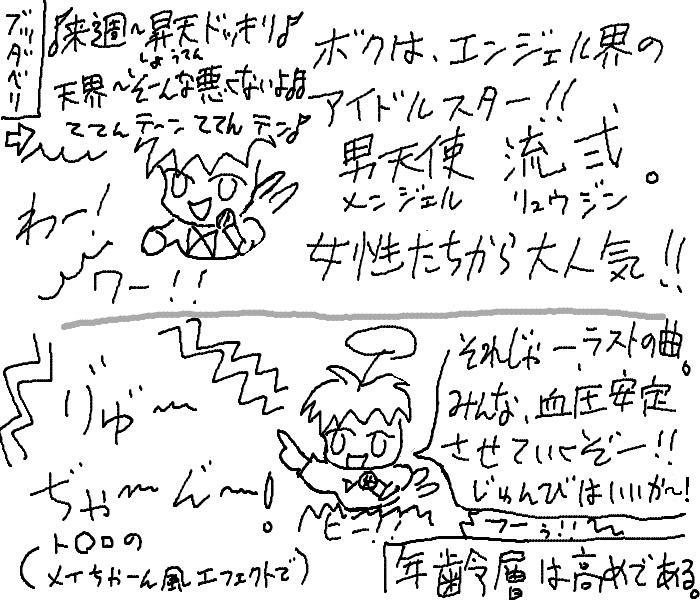 ブッダベリ
♪来週〜昇天ドッキリ♪
しょうてん
天界〜そーんな悪くないよよよ
ててんテーンててんテン♪
わー!
ワー!!
ボクは、エンジェル界の
アイドルスター!!
男天使 流弐。
メンジェル リュウジン
女性たちから大人気!!
りゅ〜
ぢゃ〜ん〜!
(ト〇ロの
メイちゃーん風エフェクトで)
ビー!!
それじゃー、ラストの曲。
みんな、血圧安定
させていくぞー!!
じゅんびはいいか〜!
フーぅ!!
年齢層は高めである。